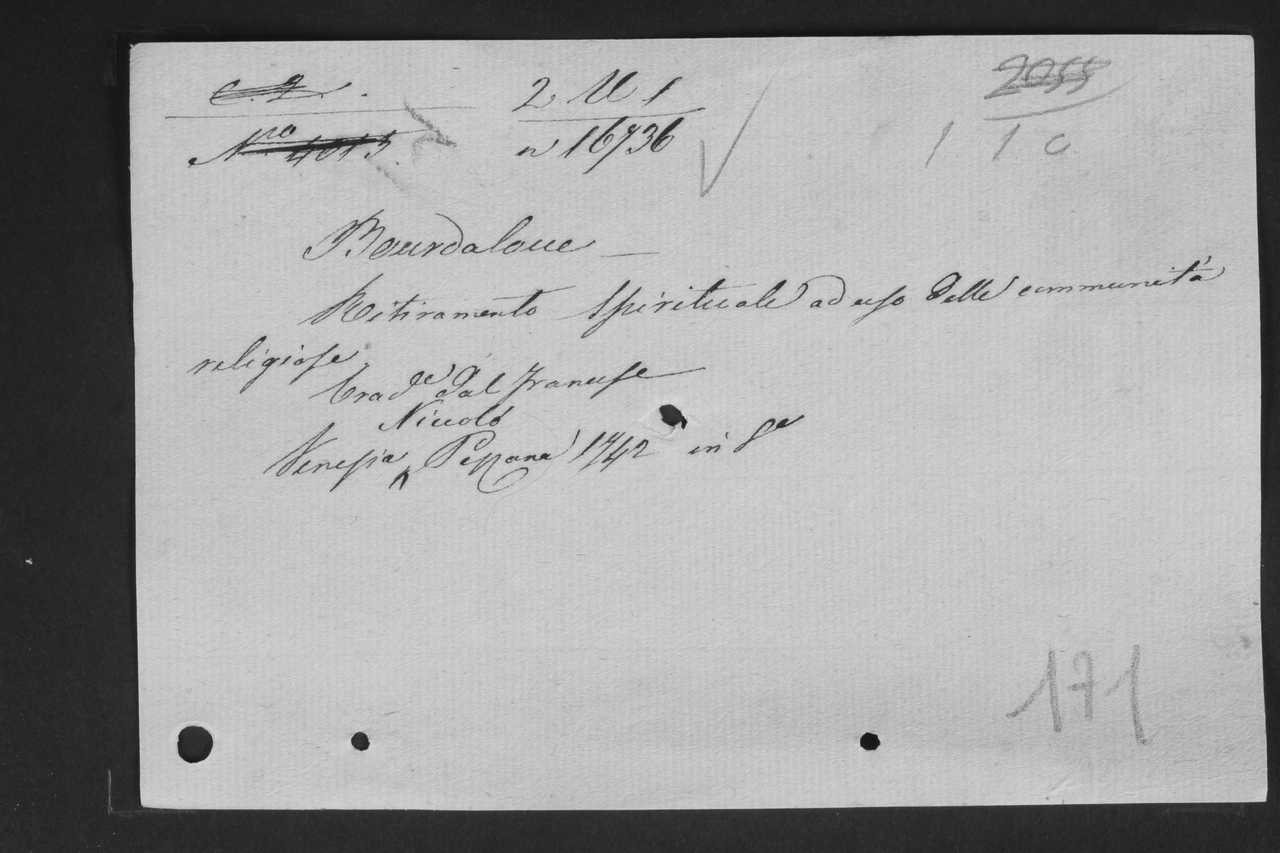 C. 2.
2 M 1
2055
Nro 4013.
n 16736
1 1 0
Bourdaloue —
Ritiramento Spirituale ad uso delle communità
religiose
trade dal Francese
Niccolò
Venezia Pezzana 1742 in 8°
171